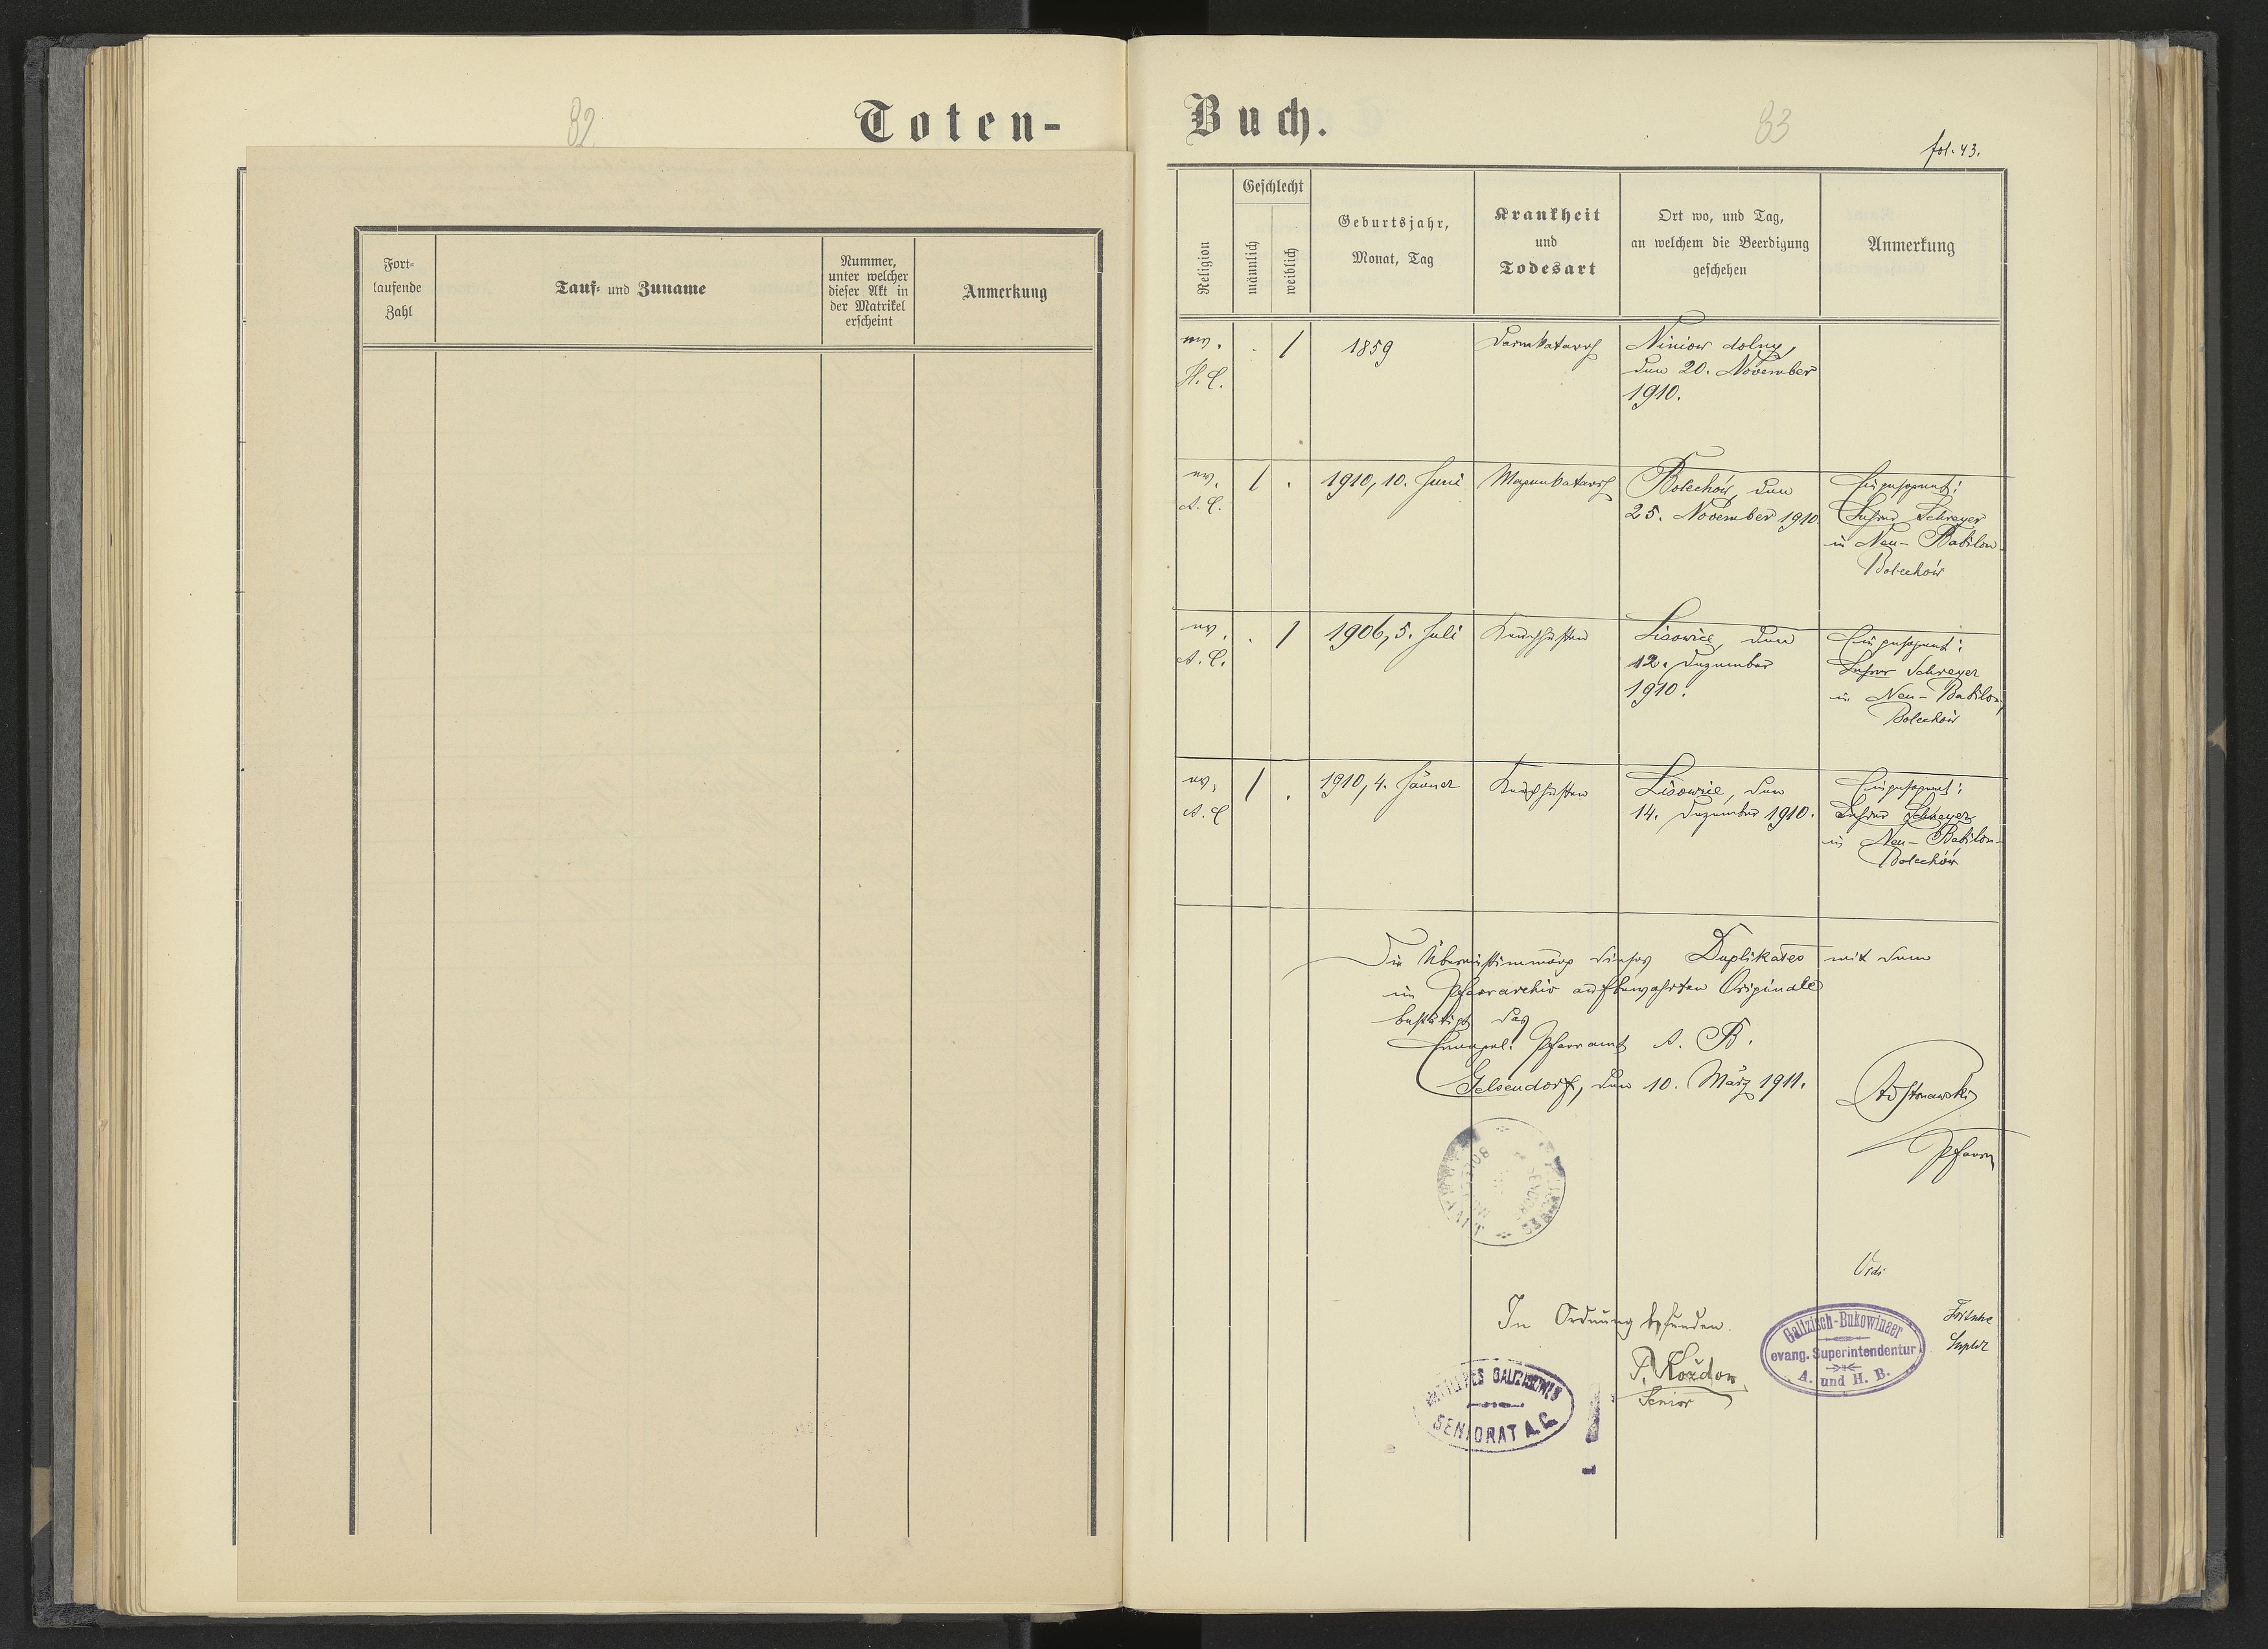 82
Toten-
Fort-
laufende
Zahl
Tauf- und Zuname
Nummer,
unter welcher
dieser Akt in
der Matrikel
erscheint
Anmerkung
Buch.
83
fol. 43.
Religion
Geschlecht
männlich
weiblich
Geburtsjahr,
Monat, Tag
Krankheit
und
Todesart
Ort wo, und Tag,
an welchem die Beerdigung
geschehen
Anmerkung
ev.
H. C.
. /
1859
Darmkatarrh
Niniow dolny,
den 20. November
1910.
ev.
A. C.
/ .
1910, 10. Juni
Magenkatarrh
Bolechów, den
25. November 1910.
Eingesegnet:
Lehrer Schreyer
in Neu-Babilon-
Bolechów
ev.
A. C.
. /
1906, 5. Juli
Keuchhusten
Lisowice, den
12. Dezember
1910.
Eingesegnet:
Lehrer Schreyer
in Neu-Babilon,
Bolechów
ev.
A. C.
/ .
1910, 4. Jänner
Keuchhusten
Lisowice, den
14. Dezember 1910.
Eingesegnet:
Lehrer Schreyer
in Neu-Babilon-
Bolechów
Die Übereinstimmung dieses Duplikates mit dem
im Pfarrarchiv aufbewahrten Originale
bestätigt das
Evangel. Pfarramt A. B.
Gelsendorf, den 10. März 1911.
Pfarrer
Vidi
In Ordnung befunden.
P. Kozdon
Senior
GALIZISCHES
SENIORAT A. C.
Galizisch-Bukowinaer
evang. Superintendentur
A. und H. B.
Fritsche
Suptdt